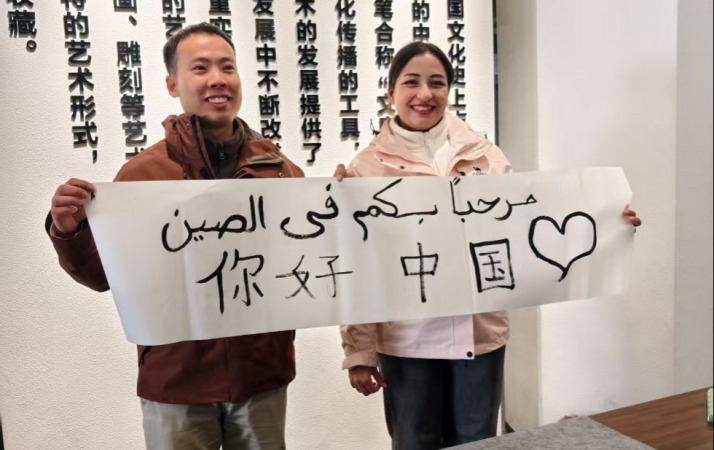 国文化史上
的中
笔合称“文
化传播的工具，
术的发展提供了
发展中不断改
重实
的艺
画、雕刻等艺
特的艺术形式，
收藏。
مرحباً بكم فى الصين
你好 中国